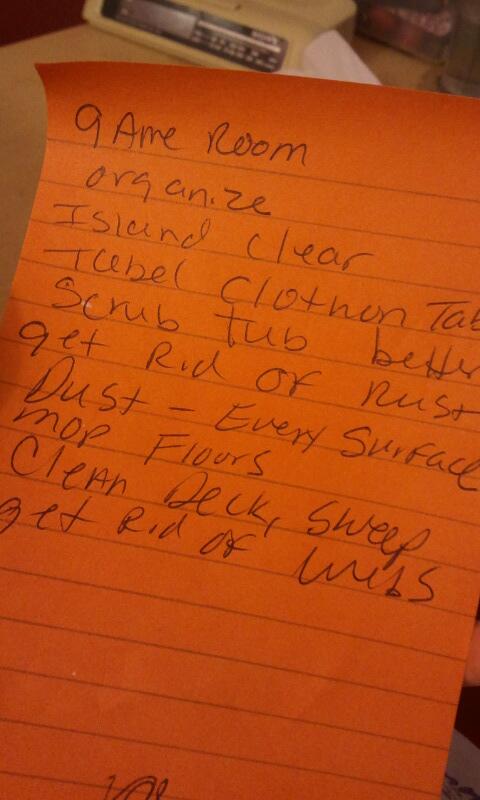 gAme Room
organize
Island Clear
Tabel Clothon Tab
Scrub tub better
get Rid OF Rust
Dust - Every Surface
mop Floors
Clean Deck, Sweep
get Rid OF webs